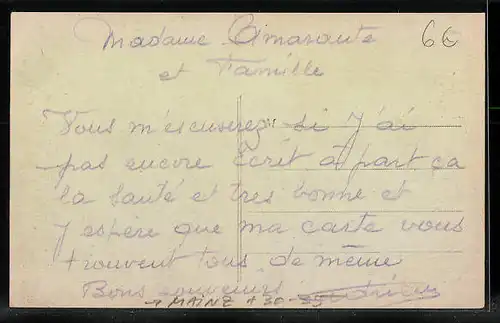 Madame Amarante 66
et Famille
Vous m'escuserez si j'ai
pas encore Ecrit à part ça
la santé et tres bonne et
J'espère que ma carte vous
trouvent tous de même
Bons souvenirs
→ MAINZ + 30-